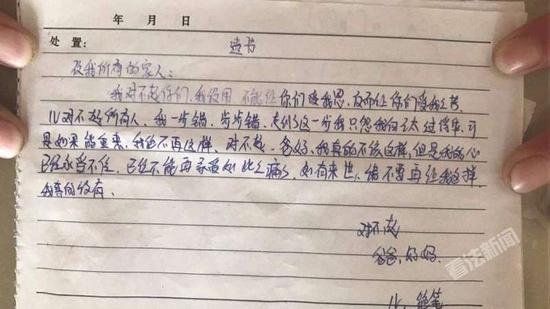 年 月 日
处 置:
遗书
致我所有的家人:
我对不起你们,我没用 不能让你们
反而让你们受我之苦,
儿对不起所有人,我一步错,步步错,走到这一步我只怨我自己太过
如果能重来,我绝不再这样,对不起,爸妈,我真的不该这样,但是我的心
已经承受不住,已经不能再承受如此之痛,如有来生,绝不要再让我这样,
我真的没有
对不起
爸爸、妈妈
儿 绝笔
看法新闻